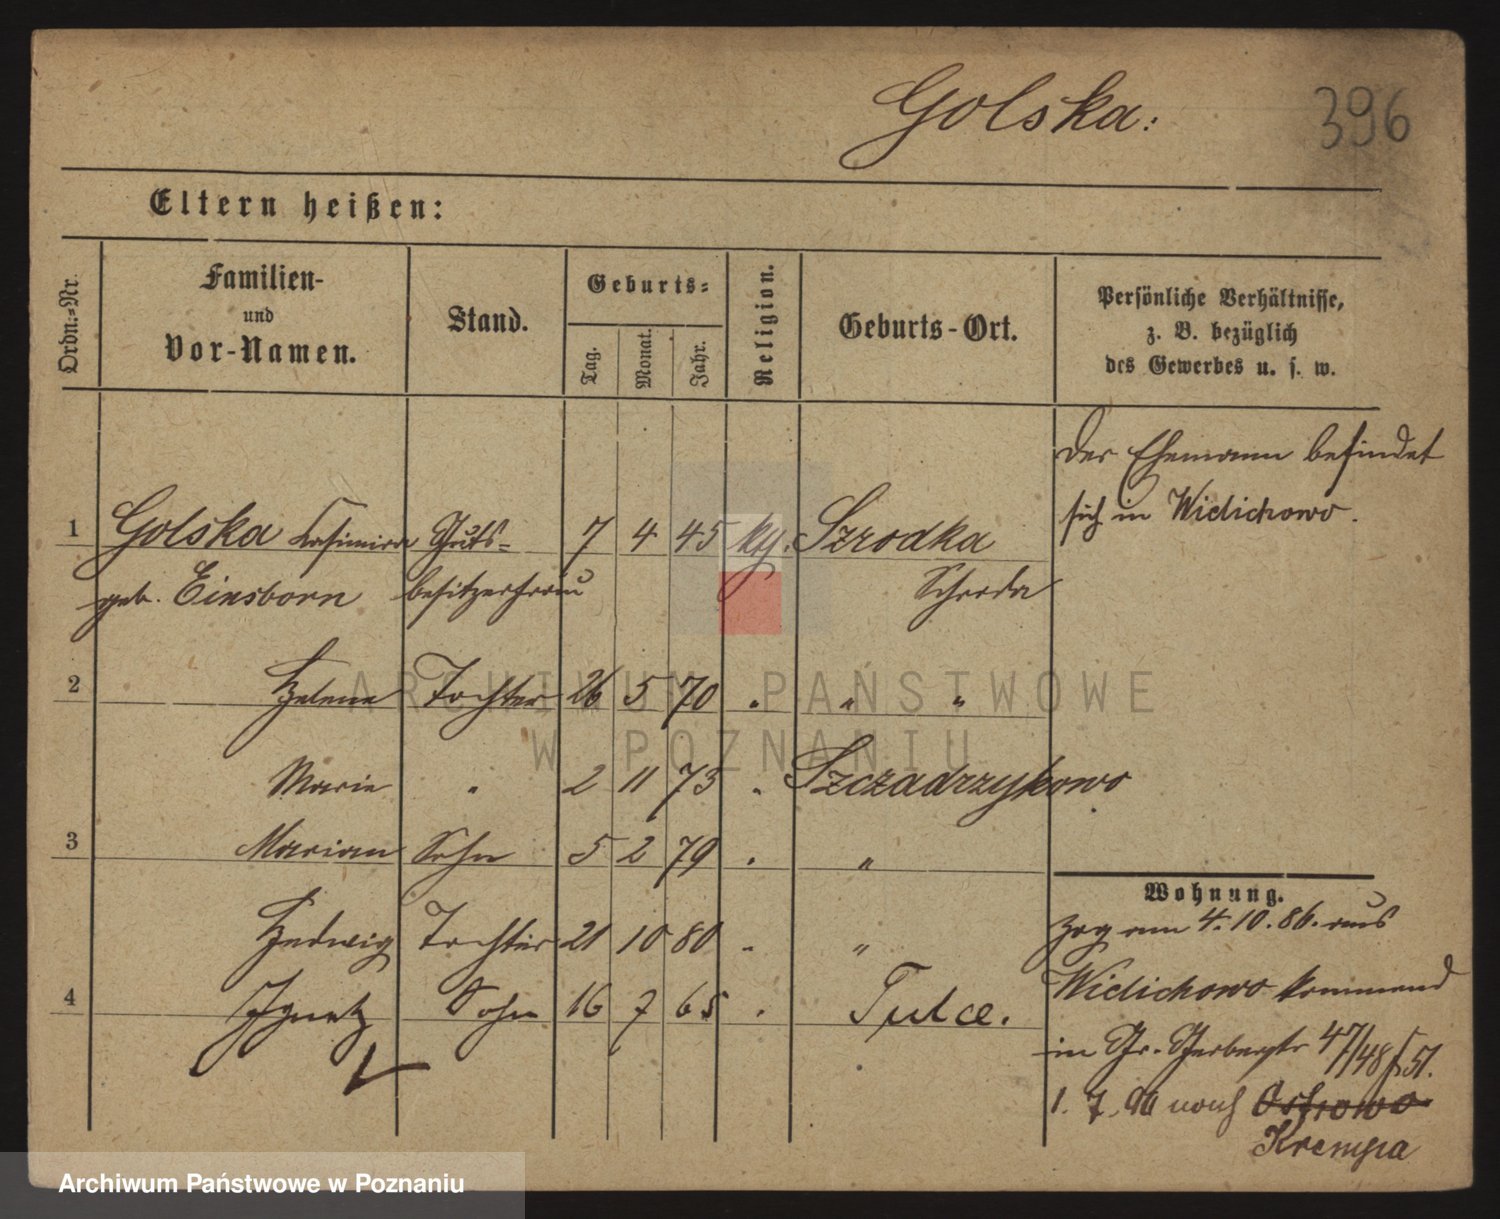 Golska:
396
Eltern heißen:
Ordn.-Nr.
Familien-
und
Vor-Namen.
Stand.
Geburts-
Tag.
Monat.
Jahr.
Religion.
Geburts-Ort.
Persönliche Verhältnisse,
z. B. bezüglich
des Gewerbes u. s. w.
Der Ehemann befindet
sich in Widichowo.
1 Golska Kasimira Guts- 7 4 45 Szrodka
geb. Einsborn besitzerfrau Schroda
2 Helene Tochter 26 5 70 " " "
Marie " 2 11 73 " Szczadrzykowo
3 Marian Sohn 5 2 79 " "
Hedwig Tochter 21 10 80 " "
4 Ignatz Sohn 16 7 65 " Tulce.
Wohnung.
Zog am 4.10.86. aus
Widichowo kommend
in Gr. Gerberstr 47/48 51.
1. 7. 90 nach Ostrowo
Krempa
ARCHIWUM PAŃSTWOWE
W POZNANIU
Archiwum Państwowe w Poznaniu